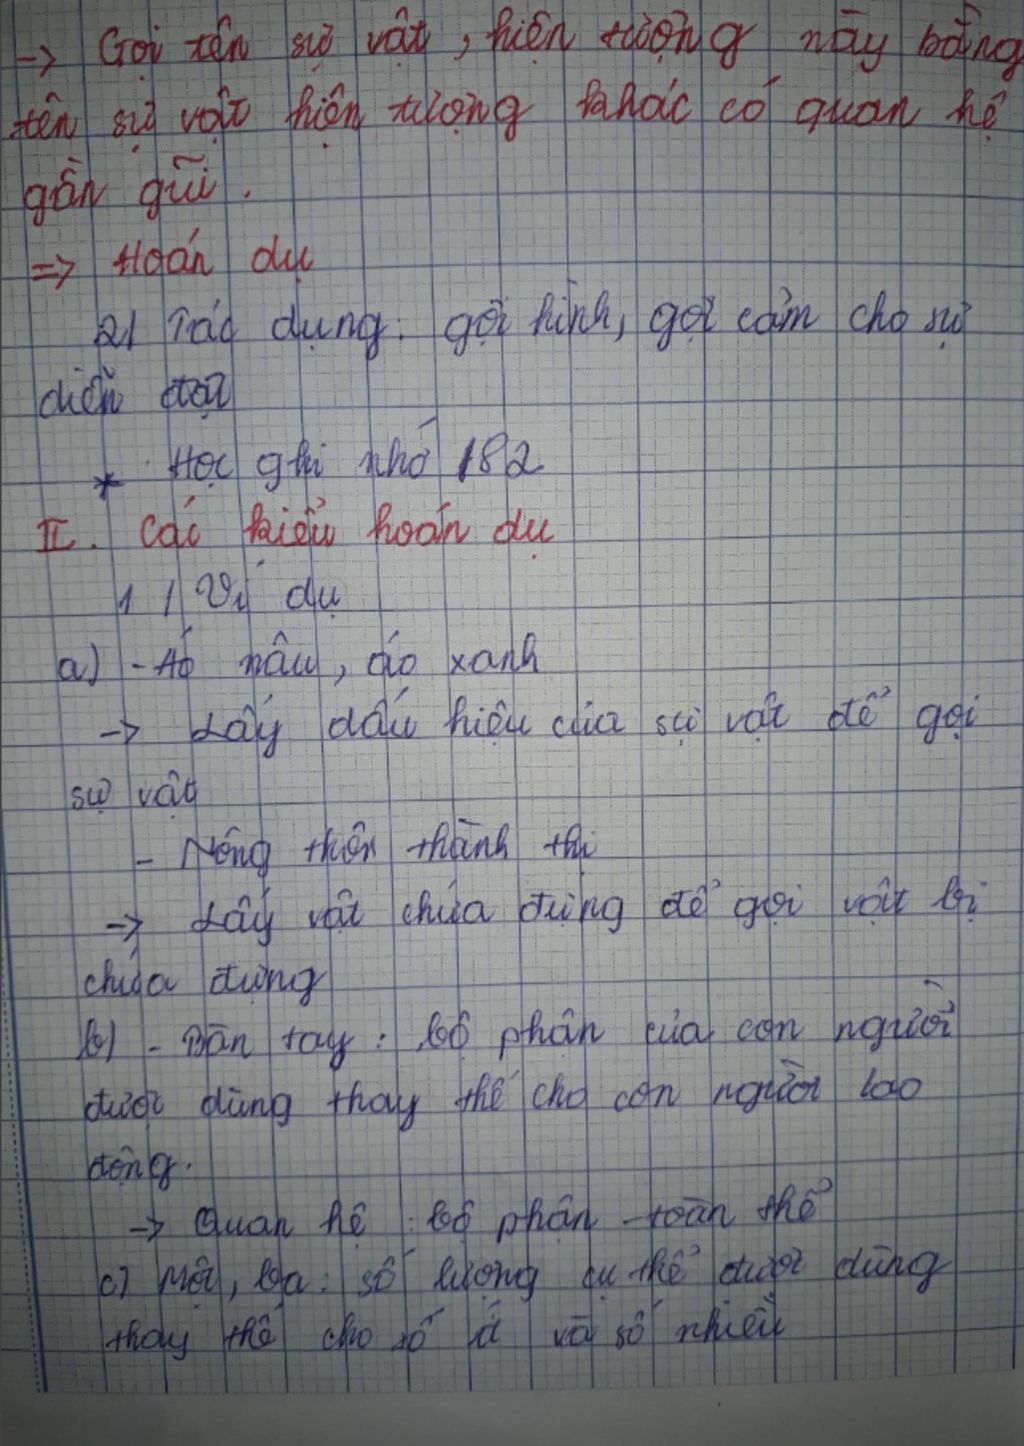 -> Gọi tên sự vật, hiện tượng này bằng
tên sự vật hiện tượng khác có quan hệ
gần gũi.
=> Hoán dụ
2) Tác dụng: gợi hình, gợi cảm cho sự
diễn đạt
* Học ghi nhớ 182
II. Các kiểu hoán dụ
1 / Ví dụ
a) - Áo nâu, áo xanh
-> Lấy dấu hiệu của sự vật để gọi
sự vật
- Nông thôn thành thị
-> Lấy vật chứa đựng để gọi vật bị
chứa đựng
b) - Bàn tay: bộ phận của con người
được dùng thay thế cho con người lao
động.
-> Quan hệ: bộ phận - toàn thể
c) Một, ba: số lượng cụ thể được dùng
thay thế cho số ít và số nhiều